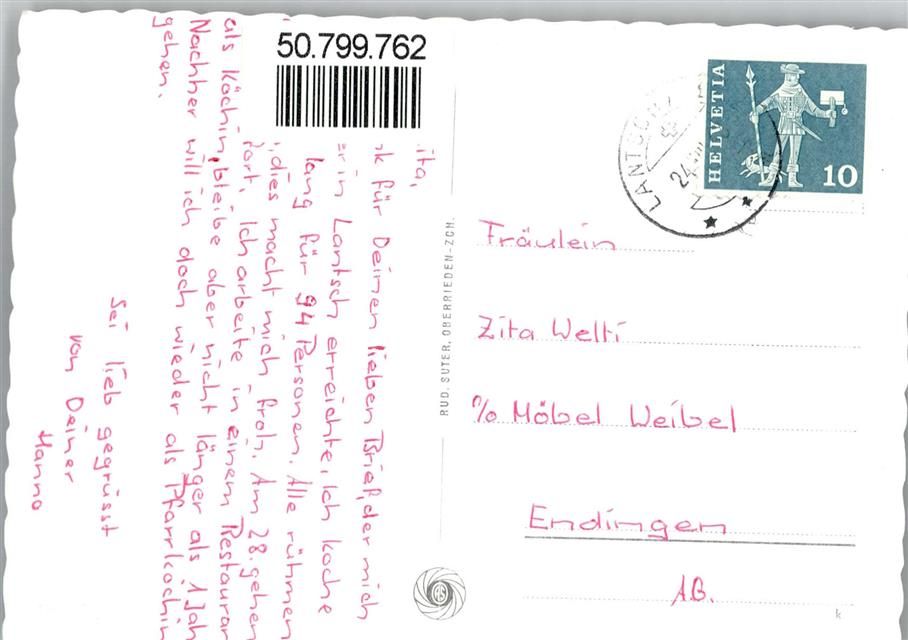 50.799.762
ita,
k für Deinen lieben Brief, der mich
er in Lantsch erreichte. Ich koche
lang für 94 Personen. Alle rühmen
, dies macht mich froh. Am 28. gehen
fort. Ich arbeite in einem Restauran
als Köchin, bleibe aber nicht länger als 1 Jah
Nachher will ich doch wieder als Pfarrköchin
gehen.
Sei lieb gegrüsst
von Deiner
Hanno
RUD. SUTER, OBERRIEDEN-ZCH.
HELVETIA
10
LANTSCH
24
Fräulein
Zita Welti
c/o Möbel Weibel
Endingen
AG.
k